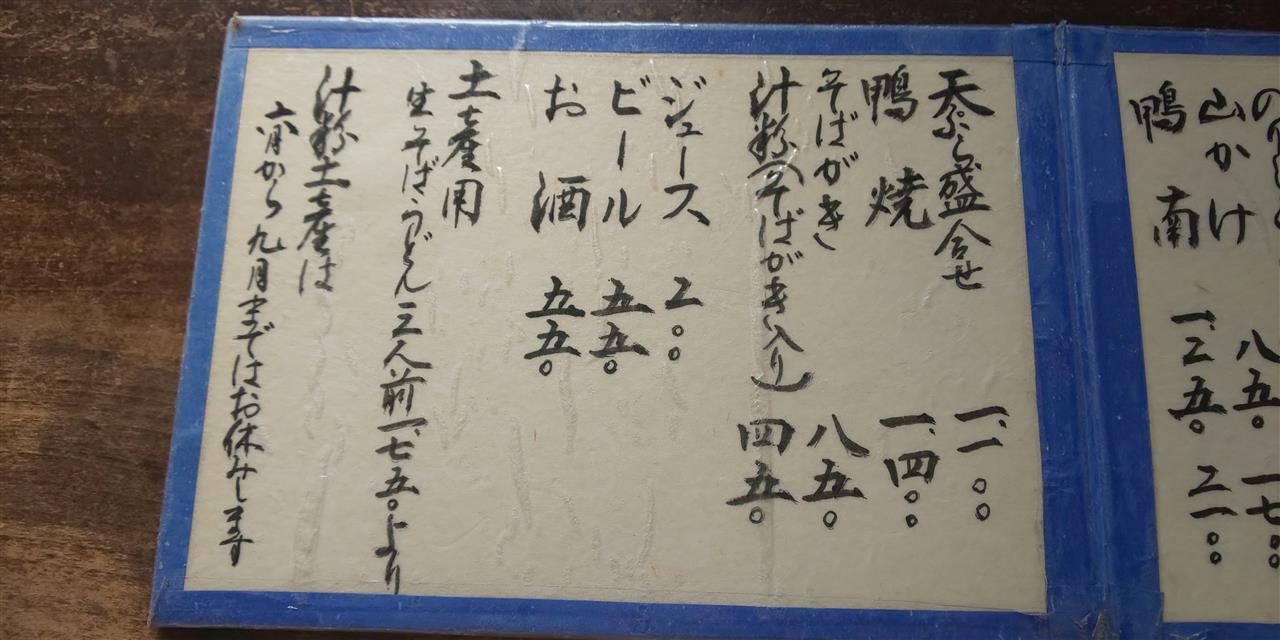 山かけ 八五〇 一七〇〇
鴨南 一、二五〇 二一〇〇
天ぷら盛合せ 一、一〇〇
鴨焼 一、四〇〇
そばがき 八五〇
汁粉(そばがき入り) 四五〇
ジュース 二〇〇
ビール 五五〇
お酒 五五〇
土産用
生そばうどん 三人前 一、七五〇より
汁粉土産は
六月から九月まではお休みします